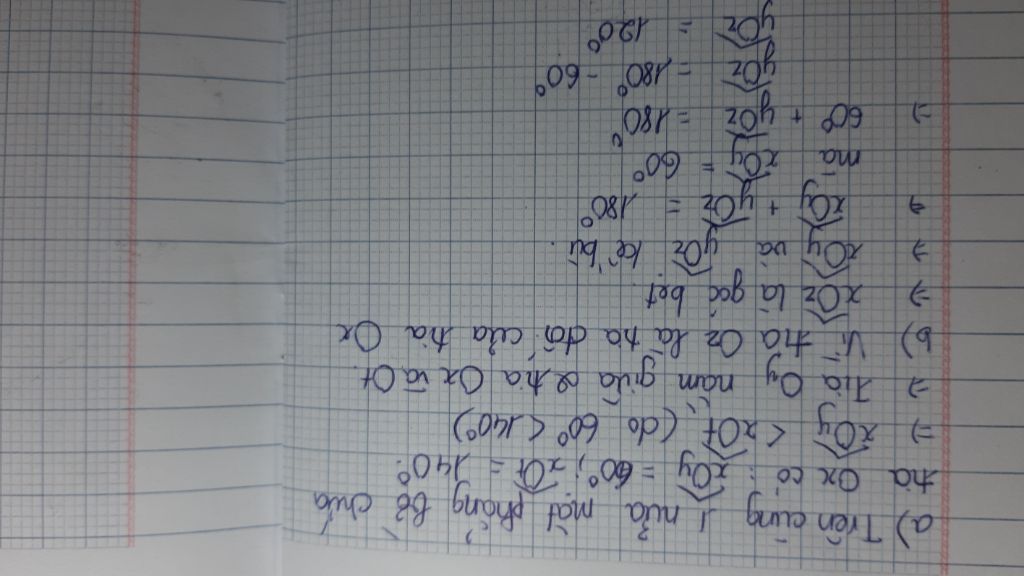 a) Trên cùng 1 nửa mặt phẳng bờ chứa
tia Ox có: xOy = 60°; xOt = 140°.
⇒ xOy < xOt (do 60° < 140°)
⇒ Tia Oy nằm giữa 2 tia Ox và Ot.
b) Vì tia Oz là tia đối của tia Ox
⇒ xOz là góc bẹt.
⇒ xOy và yOz kề bù.
⇒ xOy + yOz = 180°
mà xOy = 60°
⇒ 60° + yOz = 180°
yOz = 180° - 60°
yOz = 120°